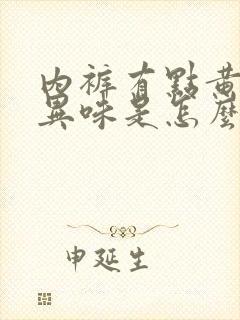 內褲有點黃
異味是怎麼
申延生